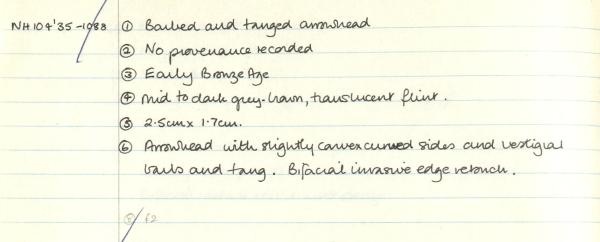 NH104'35-1088 ① Barbed and tanged arrowhead
② No provenance recorded
③ Early Bronze Age
④ Mid to dark grey-brown, translucent flint.
⑤ 2.5cm x 1.7cm.
⑥ Arrowhead with slightly convex curved sides and vestigial
barbs and tang. Bifacial invasive edge retouch.
⑧ f2